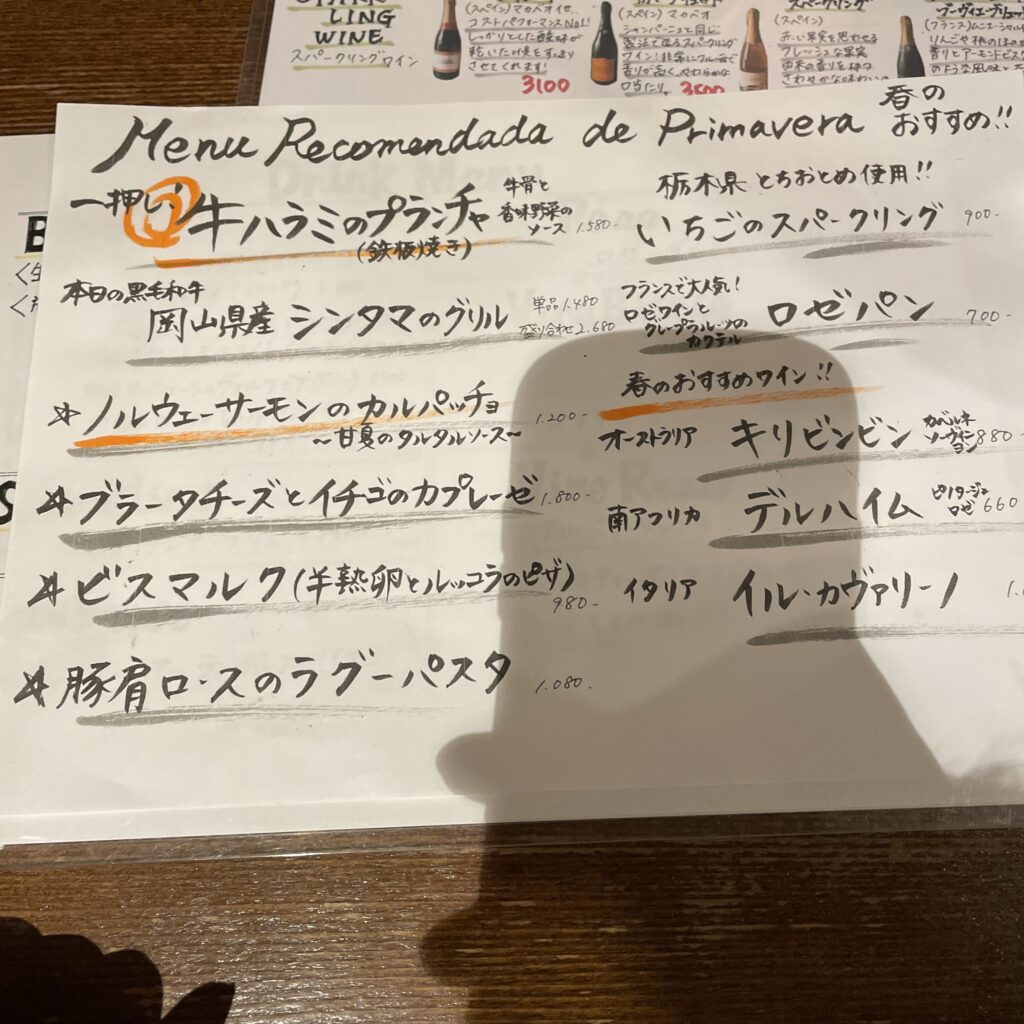 LING
WINE
スパークリングワイン
(スペイン)マカベオ 他..
コストパフォーマンスNo.1!
しっかりとした酸味が
乾いた喉をすっきり
させてくれます!
3100
(スペイン)マカベオ
シャンパーニュと同じ
製法で造るスパークリング
ワイン!非常にクリーミーで
香りが高く、やわらかな
口当たり。
3500
スパークリング
(スペイン)
赤い果実を思わせる
フレッシュな果実
由来の香りを持つ
さわやかな味わい
Menu Recomendada de Primavera
春の
おすすめ!!
一押し!
牛ハラミのプランチャ
(鉄板焼き)
牛骨と
香味野菜の
ソース
1.580-
本日の黒毛和牛
岡山県産 シンタマのグリル
単品 1.480
盛り合わせ 2.680
☆ノルウェーサーモンのカルパッチョ
1.200-
~甘夏のタルタルソース~
☆ブラータチーズとイチゴのカプレーゼ
1.800-
☆ビスマルク(半熟卵とルッコラのピザ)
980-
☆豚肩ロースのラグーパスタ
1.080.
栃木県 とちおとめ使用!!
いちごのスパークリング
900-
フランスで大人気!
ロゼワインと
グレープフルーツの
カクテル
ロゼパン
700-
春のおすすめワイン!!
オーストラリア
キリビンビン
カベルネ
ソーヴィニ
ヨン
880-
南アフリカ
デルハイム
ピノタージュ
ロゼ
660
イタリア
イル・カヴァリーノ